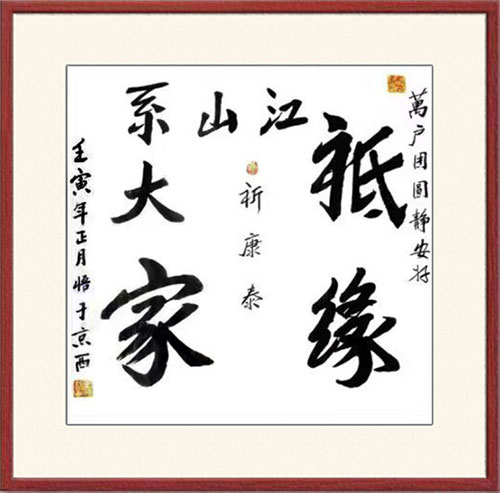 萬户团圓静安好
祗缘
江山系大家
祈康泰
壬寅年正月悟于京西